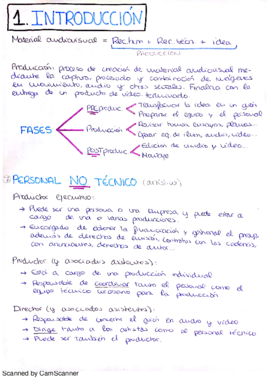 1. INTRODUCCIÓN
Material audiovisual = Rec.hum + Rec. tecn + idea
PRODUCCIÓN
Producción: proceso de creación de material audiovisual me-
diante la captura, procesado y combinación de imágenes
en movimiento, audio y otras señales. Finaliza con la
entrega de un producto de vídeo terminado.
FASES
PREproduc
Transferir la idea en un guión
Preparar el equipo y el personal
Producción
Realizar tomas, ensayos, planos...
Operar eq. de ilum, audio, vídeo...
POSTproduc
Edición de audio y vídeo...
Montaje
PERSONAL NO TÉCNICO
Productor Ejecutivo:
→ Puede ser una persona o una empresa y puede estar a
cargo de una o varias producciones.
→ Encargado de obtener la financiación y gestionar el presup.
además de derechos de emisión, contratos con las cadenas,
con anunciantes, derechos de autor.
Productor (y asociados asistentes):
→ Está a cargo de una producción individual
→ Responsable de coordinar tanto el personal como el
equipo técnico necesario para la producción
Director (y asociados asistentes):
→ Responsable de convertir el guión en audio y vídeo
→ Dirige tanto a los artistas como al personal técnico
→ Puede ser también el productor.
Scanned by CamScanner